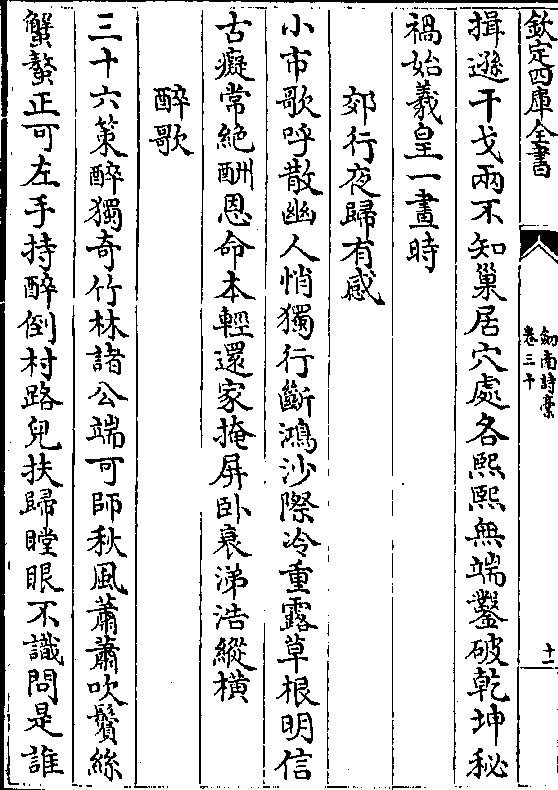 欽定四庫全書
劍南詩稾
卷三十
十二
揖遜干戈兩不知巢居穴處各熙熙無端鑿破乾坤秘
禍始羲皇一畫時
郊行夜歸有感
小市歌呼散幽人悄獨行斷鴻沙際冷重露草根明信
古癡常絶酬恩命本輕還家掩屏卧衰涕浩縱橫
醉歌
三十六策醉獨奇竹林諸公端可師秋風蕭蕭吹鬢絲
蟹螯正可左手持醉倒村路兒扶歸瞠眼不識問是誰